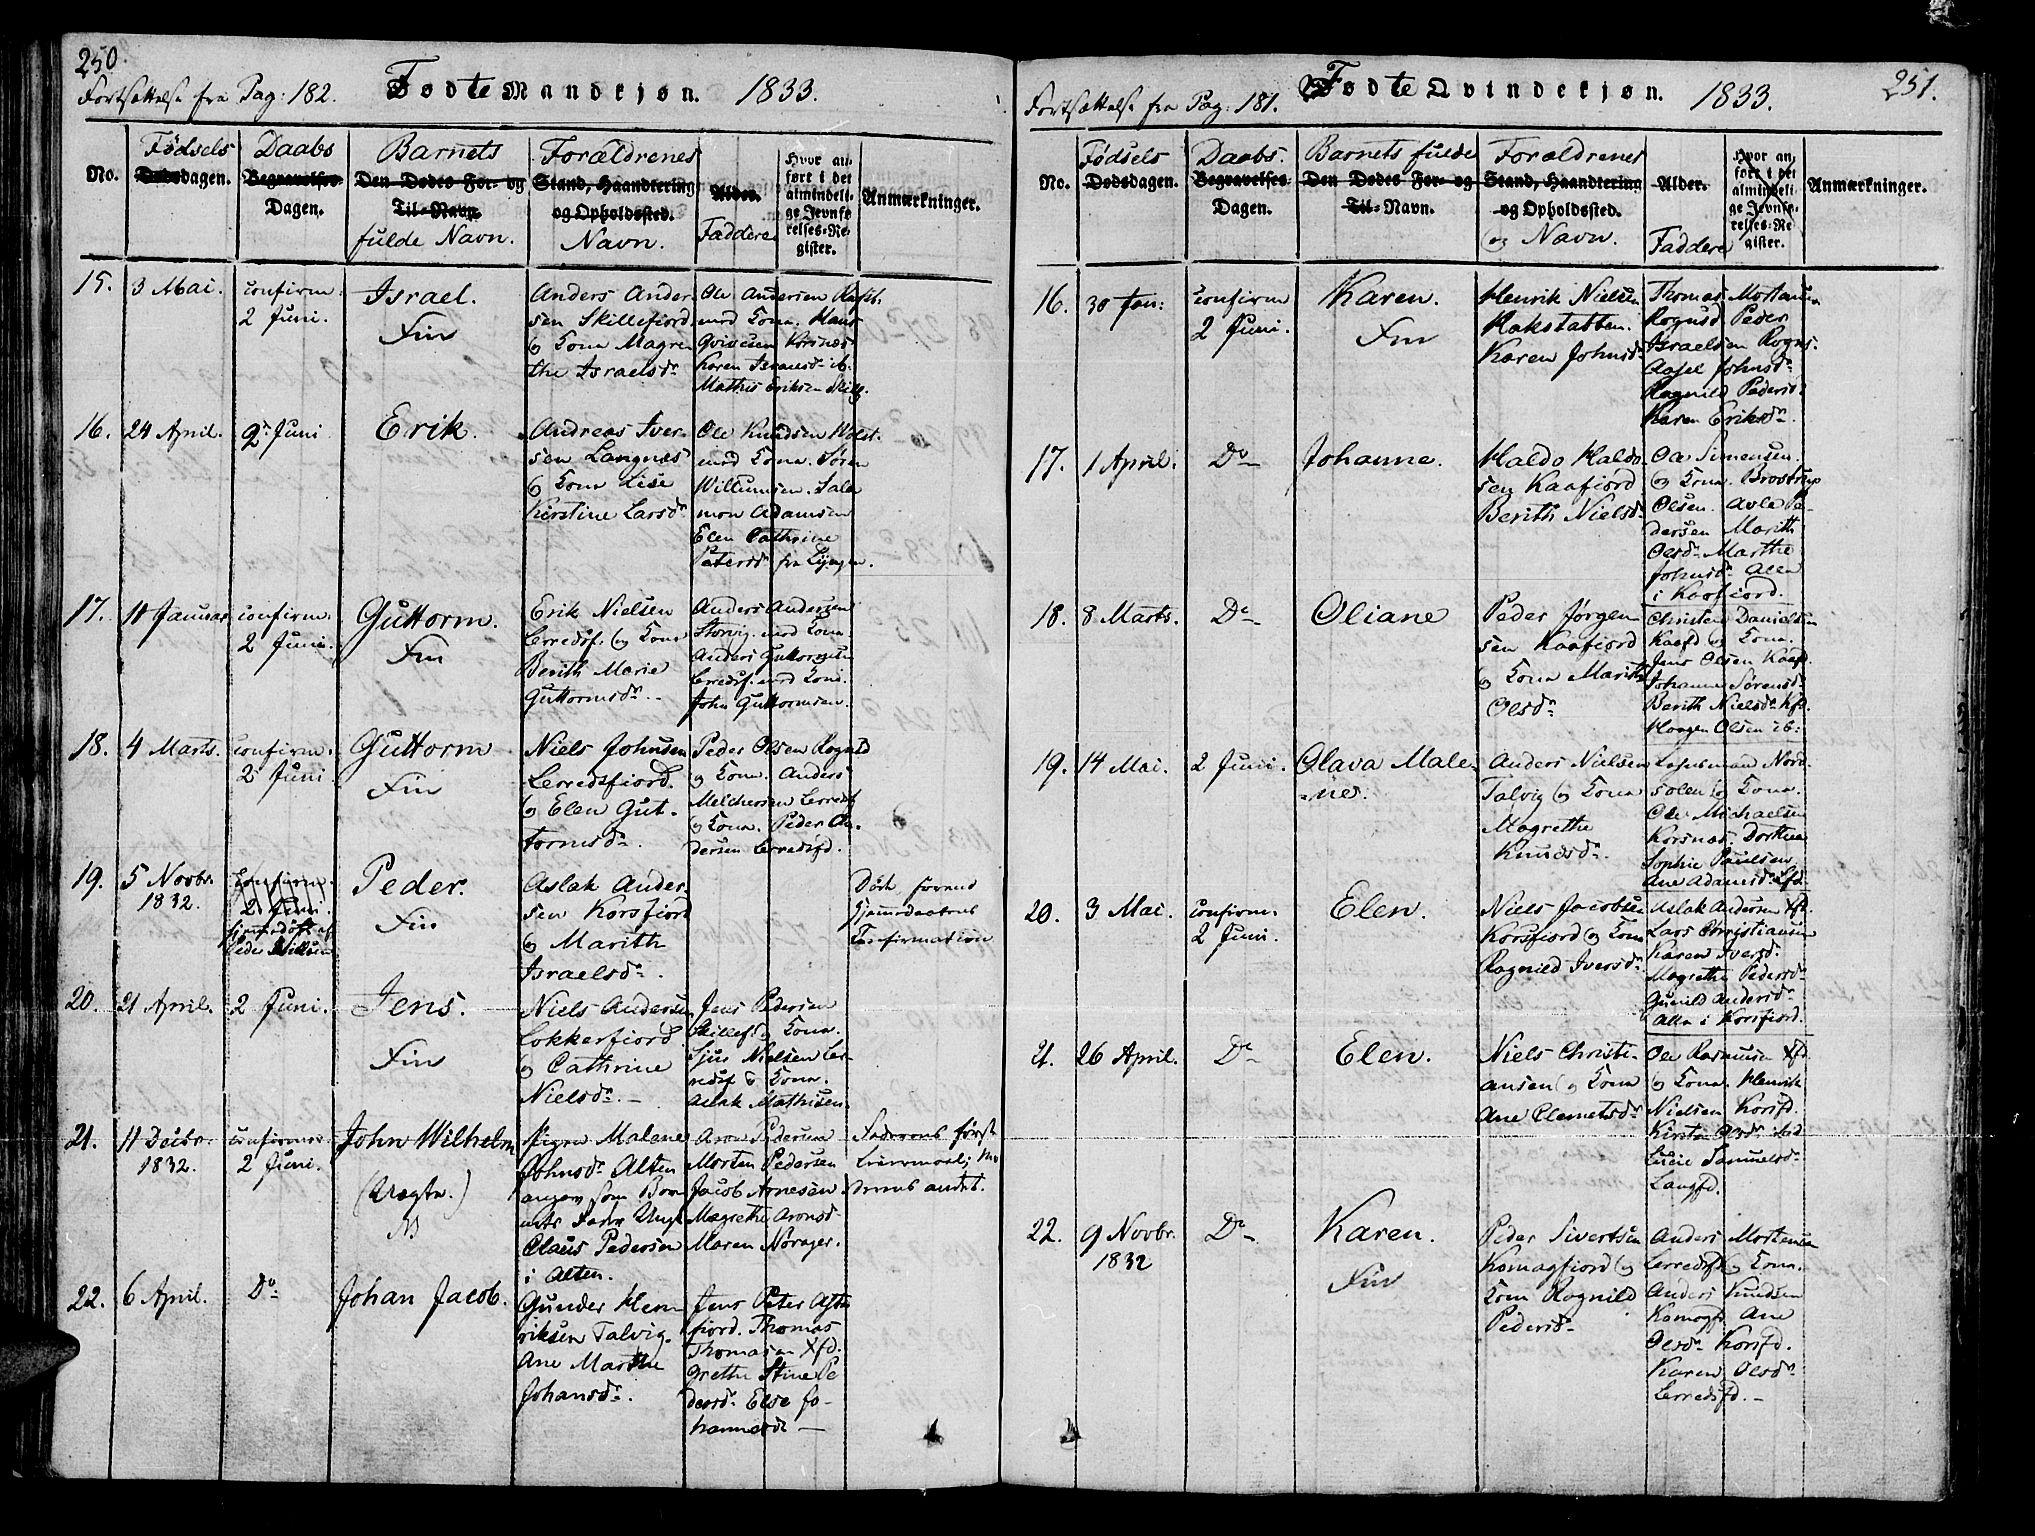 250.
Fortsættelse fra Pag: 182. Fødte Mandkjøn. 1833.
No. Fødsels dagen. Daabs Dagen. Barnets fulde Navn. Forældrenes Navn. Faddere Anmærkninger.
15. 3 Mai. confirm. 2 Juni. Israel. Fin
Anders Ander-
sen Skillefiord
og Kona Magre-
the Israelsdr
Ole Andersen
med Kona. Hans
Korsnæs
Karen Israelsd. ib.
Mathis Eriksen Skillef.
16. 24 April. 2 Juni Erik.
Andreas Iver-
sen Langnæs
og Kona Lise
Kirstine Larsdr
Ole Knudsen
med Kona. Søren
Willumsen. Salo-
mon Adamsen
Elen Cathrine
Petersdr fra Lyngen.
17. 11 Januar confirm. 2 Juni. Guttorm. Fin
Erik Nielsen
Lerredsf. og Kona
Berith Marie
Guttormsdr.
Anders Andersen
Storvig. med Kona
Anders Guttormsen
Lerredsf. med Kone.
John Guttormsen.
18. 4 Marts. confirm. 2 Juni. Guttorm Fin
Niels Johnsen
Lerredsfiord.
og Elen Gut-
tormsdr.
Peder Olsen Rognsd
og Kona. Anders
Melchersen Lerredsf
og Kona. Peder An-
dersen Lerredsfd.
19. 5 Novbr. 1832. confirm. 2 Juni. hjemdøbt af Peder Nielsen Peder. Fin
Aslak Ander-
sen Korsfiord
og Marith
Israelsdr.
Død forend
Hjemdaabens
Confirmation
20. 21 April. 2 Juni. Jens. Fin
Niels Andersen
Lokkerfiord
og Cathrine
Nielsdr.
Jens Pedersen
Skillef. og Kona.
Nielsen Ler-
redsf og Kona.
Aslak Mathisen.
21. 11 Decbr. 1832. confirmer. 2 Juni. John Wilhelm (Uægte.)
Malene
Johnsdr Alten
angav som Bar-
nets Fader Ungk
Claus Pedersen
i Alten.
Aron Pedersen
Morten Pedersen
Jacob Arnesen
Magrethe Aronsd
Maren Nørager.
Faderens først
Leiermaal; Mo-
drens andet.
22. 6 April. Do Johan Jacob.
Gunder Hen-
riksen Talvig.
Ane Marthe
Johansdr.
Jens Peter
fiord. Thomas
Thomasen Kfd.
Grethe Stine Pe
dersdr. Else Jo-
hannesdr
251.
Fortsættelse fra Pag: 181. Fødte Qvindekjøn. 1833.
No. Fødsels Dodsdagen. Daabs. Begravelses Dagen. Barnets fulde Den Dodes For- og Til-Navn. Forældrenes Stand, Haandtering og Opholdssted. og Navn. Alder. Faddere Hvor anført i det almindelige Jevnførelses-Register. Anmærkninger.
16. 30 Jan: confirm 2 Juni. Karen. Fin
Henrik Nielsen
Hakstabben.
Karen Johnsdr
Thomas Mortensen
Rognsd Peder
Israelsen Rogns.
Aasel Johnsdr
Ragnild Pedersd.
Karen Eriksdr.
17. 1 April. Do Johanne.
Haldo Haldo-
sen Kaafiord
Berith Nielsdr
Ole Simensen
og Kona. Brostrup
Olsen. Avle Pe-
dersen Marith
Olsdr Marthe
Johnsdr Alle
i Kaafiord.
18. 8 Marts. Do Oliane
Peder Jørgen-
sen Kaafiord
og Kona Marith
Olsdr
Christen Danielsen
Kaafd og Kona.
Jens Olsen Kaafd.
Johanne Sørensdr
Berith Nielsdr Kfd.
Haagen Olsen ib:
19. 14 Mai. 2 Juni. Olava Male-
ne.
Anders Nielsen
Talvig og Kona
Magrethe
Knudsdr.
Lehnsmand Nord-
og Kona.
Ole Michaelsen
Korsnæs, Dorthea
Sophie Paulsen,
Ane Adamsdr Lfd.
20. 3 Mai. confirm. 2 Juni. Elen.
Niels Jacobsen
Korsfiord og Kona
Ragnild Iversdr
Aslak Andersen Kfd.
Lars Christiansen
Karen Iversd.
Magrethe Pedersdr
Gunild Andersdr
Alle i Korsfiord.
21. 26 April. Do Elen.
Niels Christi-
ansen og Kona
Ane Clemetsdr
Ole Rasmusen Kfd
og Kona. Henrik
Nielsen Korsfd.
Kirsten Olsdr
Lucie Samuelsd.
Langfd.
22. 9 Novbr. 1832 Do Karen. Fin
Peder Sivertsen
Komagfiord og
Kona Ragnild
Pedersdr
Anders Mortensen
Lerredsfd og Kona.
Anders Knudsen
Komagfd Ane
Olsdr Korsfd.
Karen Olsdr
Lerredsfd.